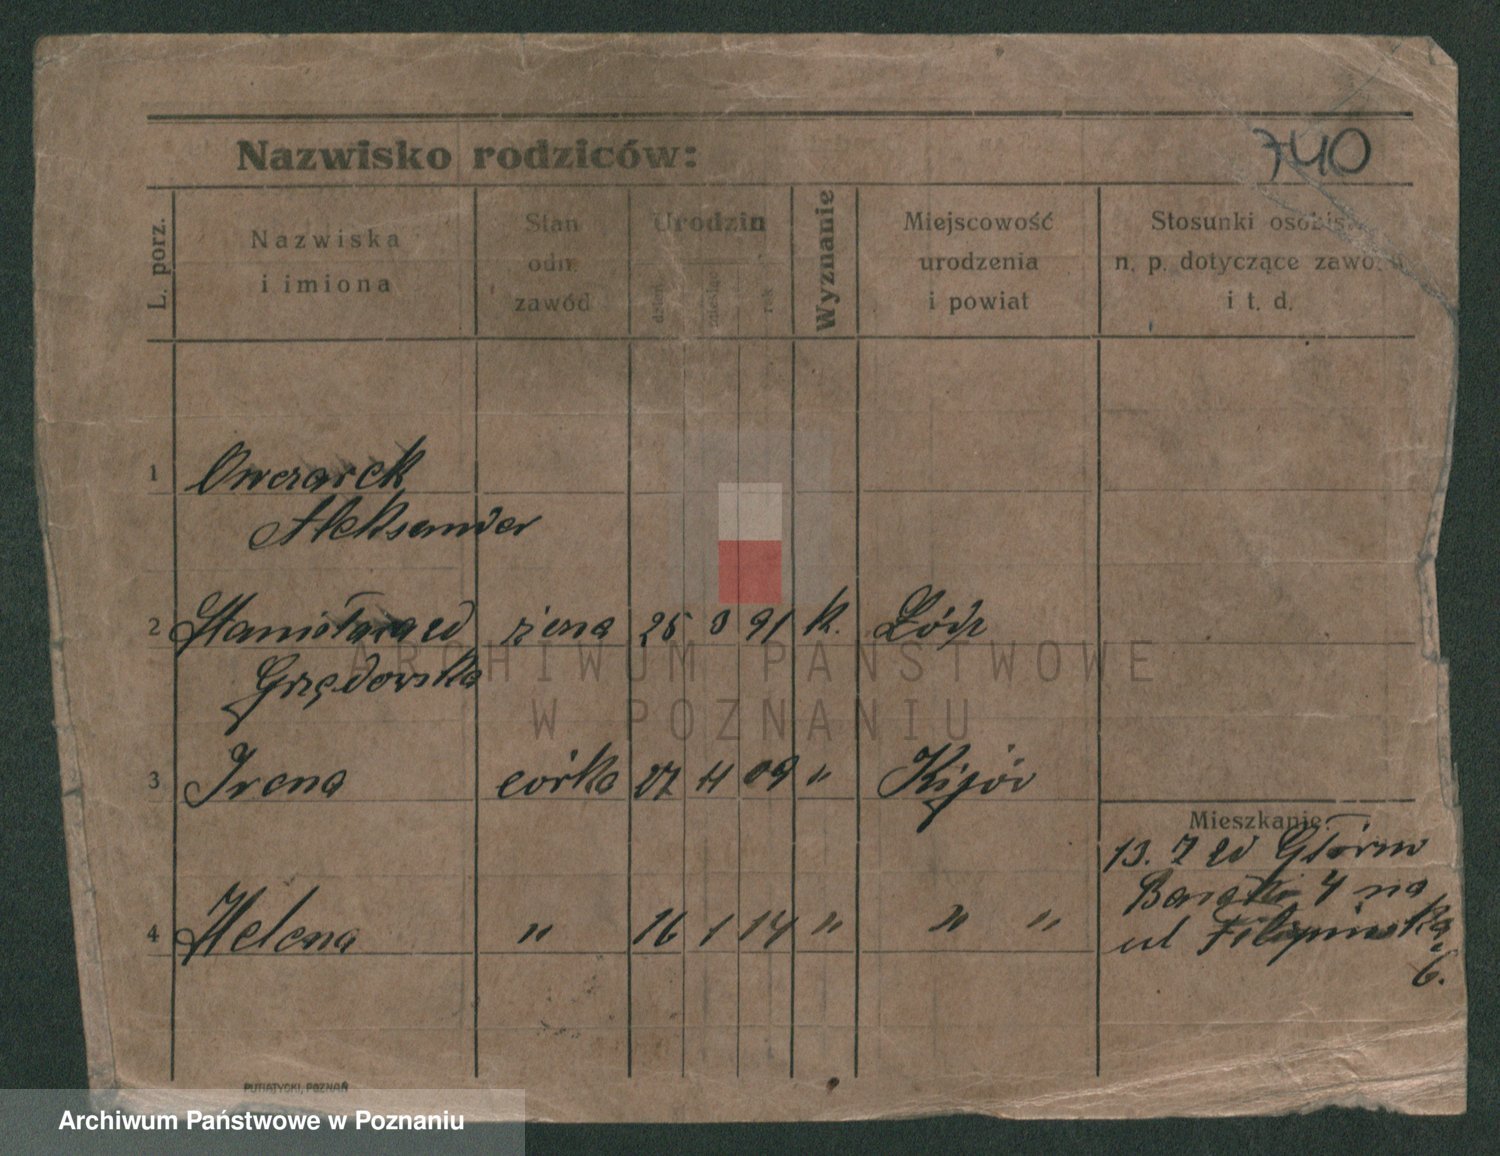 740
Nazwisko rodziców:
L. porz.
Nazwiska
i imiona
Stan
odn.
zawód
Urodzin
dzień
miesiąc
rok
Wyznanie
Miejscowość
urodzenia
i powiat
Stosunki osobis.
n. p. dotyczące zawodu
i t. d.
1 Owczarek
Aleksander
2 Stanisława zd żona 25 3 91 k. Łódź
Grzędowska
3 Irena córka 27 11 09 " Kijów
4 Helena " 16 1 14 " " "
Mieszkanie:
13. 7 zd Główn
Baraki 4 na
ul
6.
PUTIATYCKI, POZNAŃ
ARCHIWUM PAŃSTWOWE
W POZNANIU
Archiwum Państwowe w Poznaniu